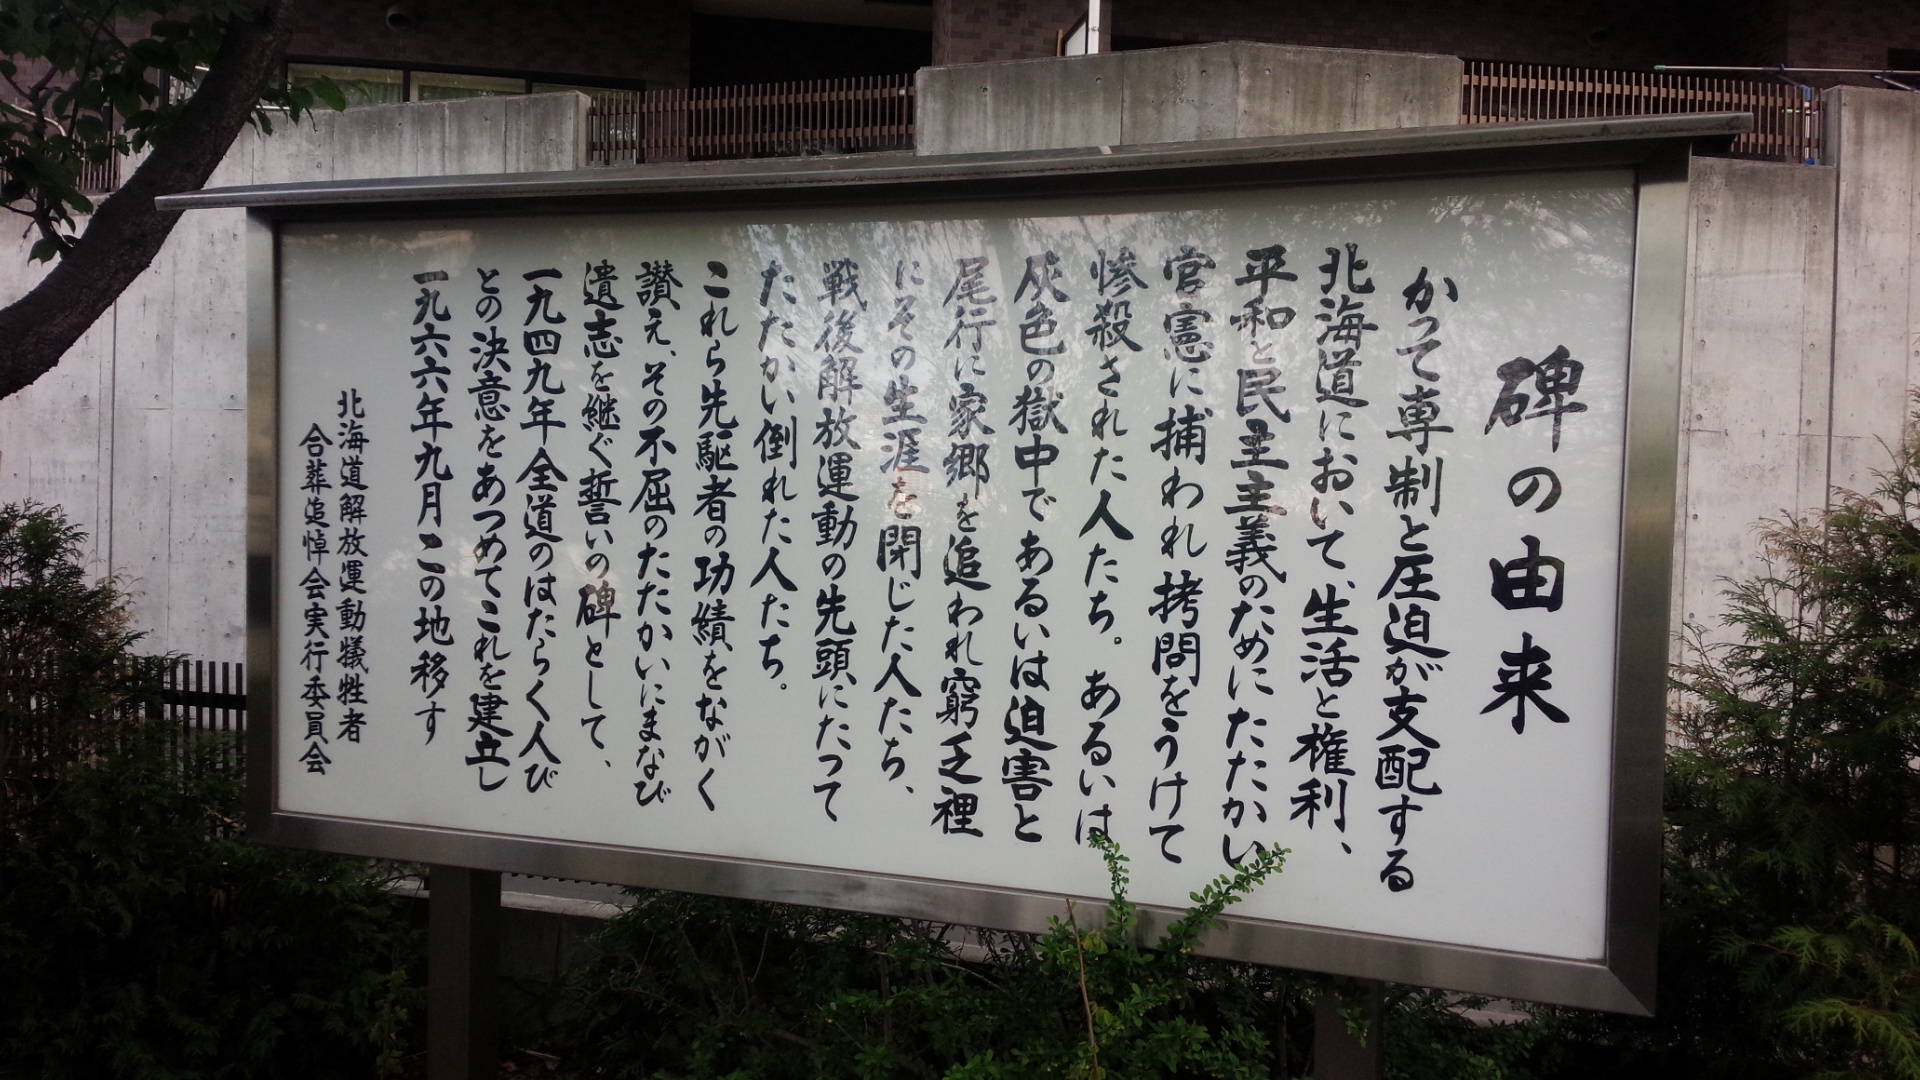 碑の由来
かって専制と圧迫が支配する
北海道において、生活と権利、
平和と民主主義のためにたたかい
官憲に捕われ拷問をうけて
惨殺された人たち。あるいは
灰色の獄中であるいは迫害と
尾行に家郷を追われ窮乏裡
にその生涯を閉じた人たち、
戦後解放運動の先頭にたって
たたかい倒れた人たち。
これら先駆者の功績をながく
讃え、その不屈のたたかいにまなび
遺志を継ぐ誓いの碑として、
一九四九年全道のはたらく人び
との決意をあつめてこれを建立し
一九六六年九月この地移す
北海道解放運動犠牲者
合葬追悼会実行委員会